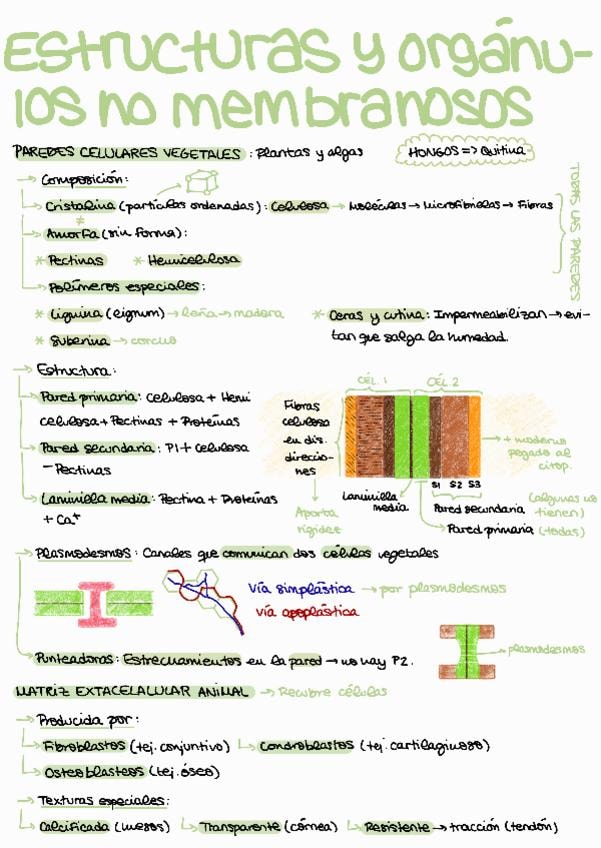 Estructuras y orgánu-
los no membranosos
PAREDES CELULARES VEGETALES: Plantas y algas
HONGOS => Quitina
→ Composición:
→ Cristalina (partículas ordenadas): Celulosa → Moléculas → Microfibrillas → Fibras
≠
→ Amorfa (sin forma):
* Pectinas * Hemicelulosa
→ Polímeros especiales:
* Lignina (lignum) → leña → madera
* Ceras y cutina: Impermeabilizan → evi-
tan que salga la humedad.
* Suberina → corcho
TODAS LAS PAREDES
→ Estructura:
→ Pared primaria: celulosa + Hemi
celulosa + Pectinas + Proteínas
→ Pared secundaria: P1 + celulosa
- Pectinas
→ Laminilla media: Pectina + Proteínas
+ Ca+
CÉL. 1 CÉL. 2
Fibras
celulosa
en dis.
direccio-
nes
Aporta
rigidez
→ + moderno
pegado al
citop.
S1 S2 S3
Laminilla
media
Pared secundaria (algunas no
tienen)
Pared primaria (todas)
→ Plasmodesmos: Canales que comunican dos células vegetales
Vía simplástica → por plasmodesmos
vía apoplástica
→ Punteaduras: Estrechamientos en la pared → no hay P2.
plasmodesmos
MATRIZ EXTACELALULAR ANIMAL → Recubre células
→ Producida por:
→ Fibroblastos (tej. conjuntivo) → Condroblastos (tej. cartilaginoso)
→ Osteoblasteos (tej. óseo)
→ Texturas especiales:
→ Calcificada (huesos) → Transparente (córnea) → Resistente → tracción (tendón)